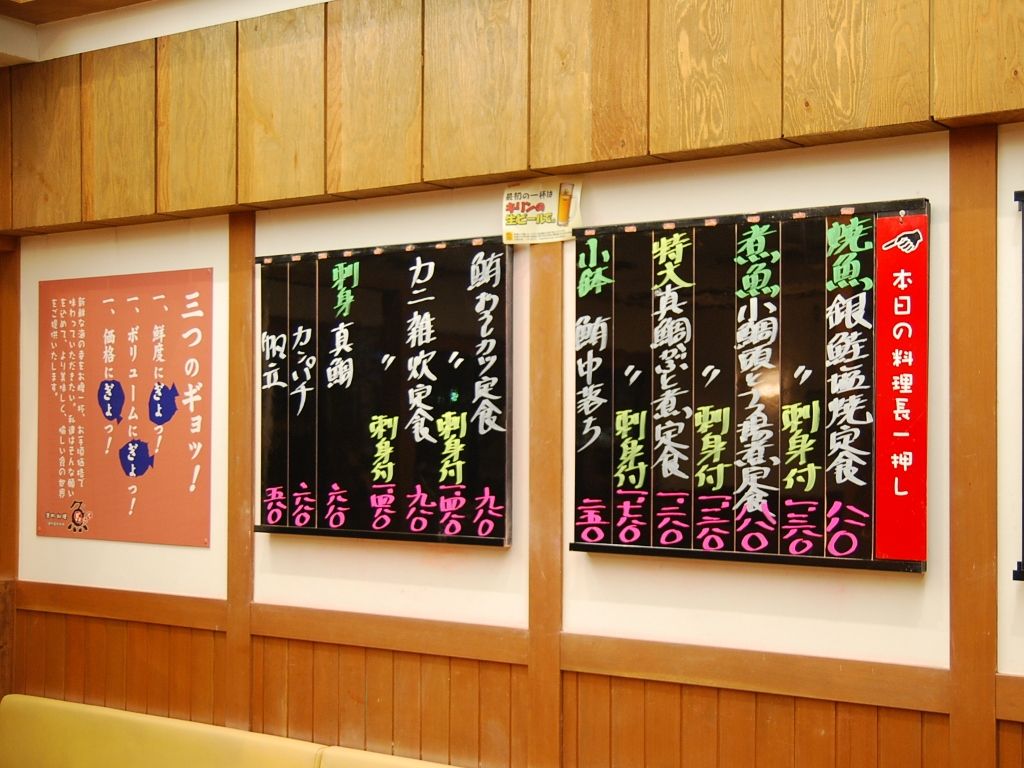 本日の料理長一押し
焼魚 銀鮭塩焼定食 八八〇
〃 刺身付 一.三八〇
煮魚 小鯛頭とろ塩煮定食 八八〇
〃 刺身付
特大 真鯛ぶと煮定食
〃 刺身付
小鉢 鮪中落ち 二五〇
最初の一杯は
キリンの
生ビールで。
鮪カツ定食 九八〇
〃 刺身付 一.四八〇
カニ雑炊定食 九八〇
〃 刺身付 一.四八〇
刺身 真鯛 六八〇
カンパチ 六八〇
帆立 五八〇
三つのギョッ!
一、鮮度にぎょっ!
一、ボリュームにぎょっ!
一、価格にぎょっ!
新鮮な海の幸をお腹一杯、お手頃価格で
味わっていただきたい。私達はそんな願い
を込めて、より美味しく、愉しい食の世界
をご提供いたします。